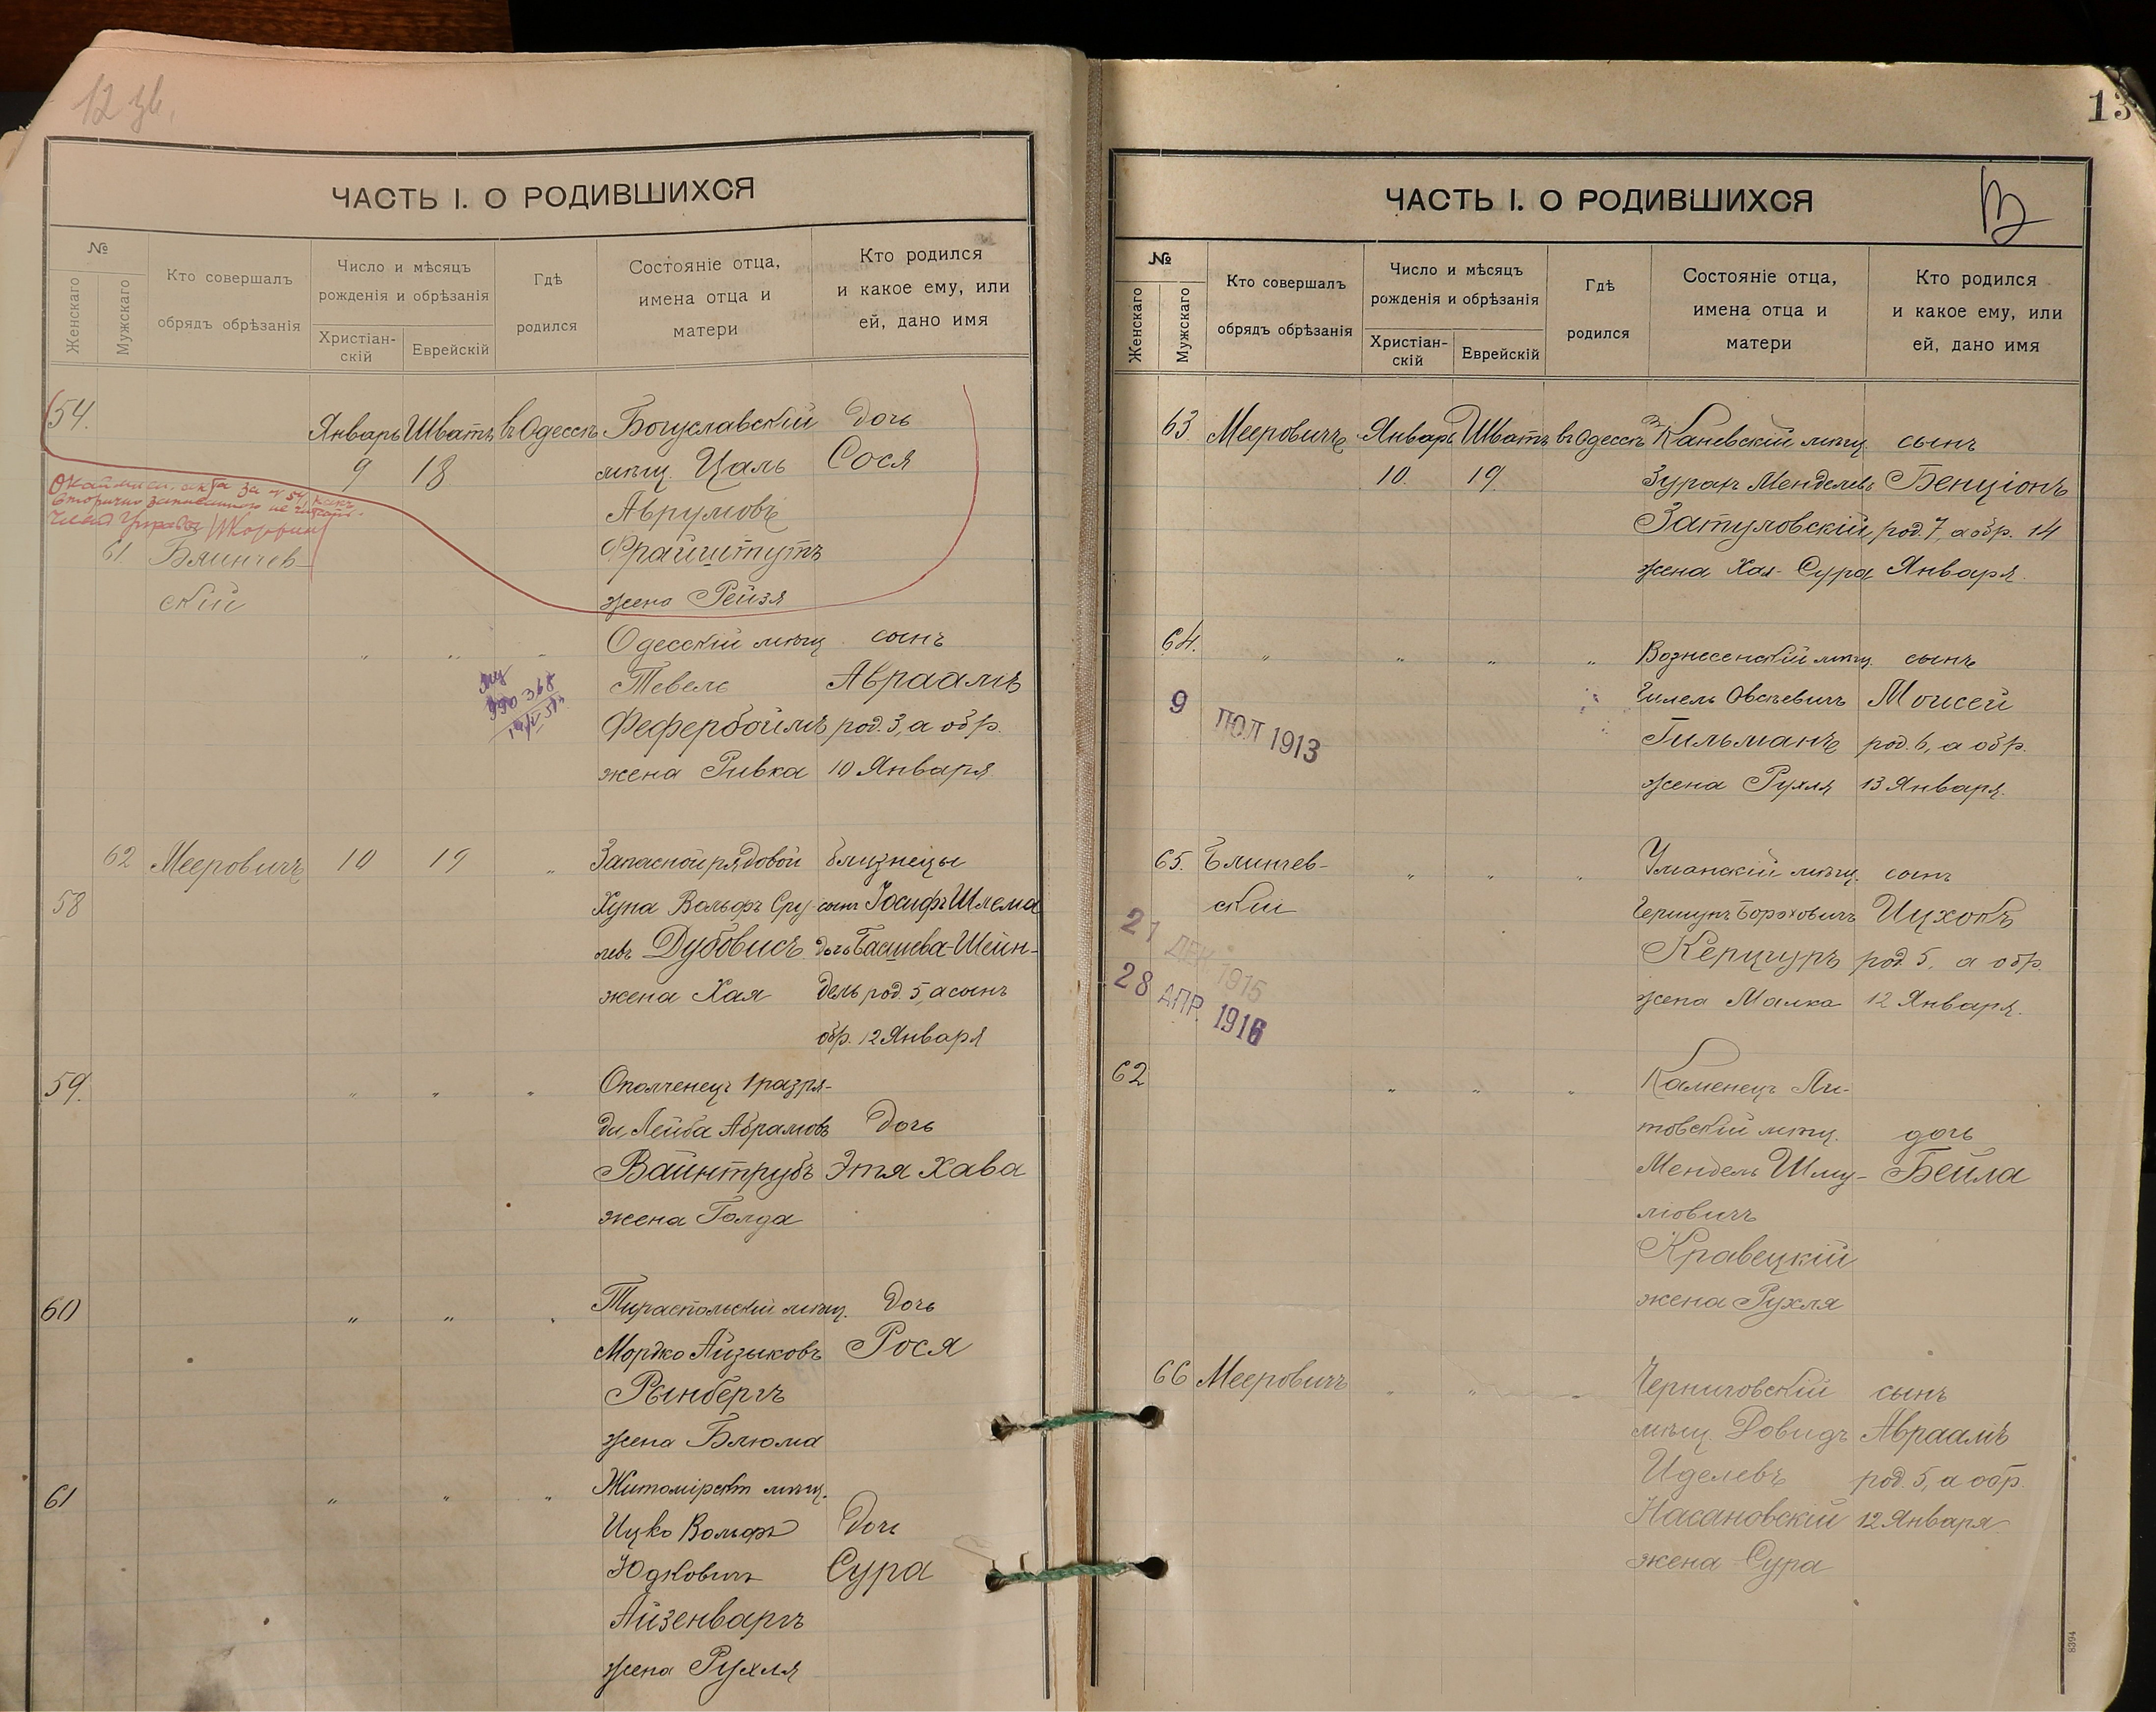 12 зв.
ЧАСТЬ I. О РОДИВШИХСЯ
№
Женскаго
Мужскаго
Кто совершалъ
обрядъ обрѣзанія
Число и мѣсяцъ
рожденія и обрѣзанія
Христіан-
скій
Еврейскій
Гдѣ
родился
Состояніе отца,
имена отца и
матери
Кто родился
и какое ему, или
ей, дано имя
54. Январь Шватъ въ Одессѣ Богуславскій дочь
9 18 мѣщ. Цаль Сося
Аврумовъ
Фрайштутъ
жена Рейзя
61. Блинчев-
скій
" " " Одесскій мѣщ. сынъ
Тевель Авраамъ
Фефербоймъ род. 3, а обр.
жена Ривка 10 Января
62 Мееровичъ 10 19 " Запасной рядовой близнецы
58 Хуна Вольфъ Сру- сынъ Іосифъ Шлема
левъ Дубовисъ дочь Басшева-Шейн-
жена Хая дель род. 5, а сынъ
обр. 12 Января
59. " " " Ополченецъ 1 разря-
да, Лейба Абрамовъ дочь
Вайнтрубъ Этя Хава
жена Голда
60 " " " Тираспольскій мѣщ. дочь
Мордко Айзыковъ Рося
Рынбергъ
жена Блюма
61 " " " Житомірскій мѣщ.
Ицко Вольфъ дочь
Юдковичъ Сура
Айзенваргъ
жена Рухля
13
ЧАСТЬ I. О РОДИВШИХСЯ
№
Женскаго
Мужскаго
Кто совершалъ
обрядъ обрѣзанія
Число и мѣсяцъ
рожденія и обрѣзанія
Христіан-
скій
Еврейскій
Гдѣ
родился
Состояніе отца,
имена отца и
матери
Кто родился
и какое ему, или
ей, дано имя
63 Мееровичъ Январь Шватъ въ Одессѣ Каневскій мѣщ. сынъ
10. 19. Зурахъ Менделевъ Бенціонъ
Затуловскій, род. 7, а обр. 14
жена Хая-Сура Января.
64. " " " " Вознесенскій мѣщ. сынъ
Гилель Овсѣевичъ Моисей
Гильманъ род. 6, а обр.
жена Рухля 13 Января.
9 ІЮЛ 1913
65. Блинчев- " " " Уманскій мѣщ. сынъ
скій Гершунъ Бороховичъ Ицхокъ
Керцгуръ род. 5, а обр.
жена Малка 12 Января.
21 ДЕК 1915
28 АПР. 1916
62 " " " Каменецъ Ли-
товскій мѣщ. дочь
Мендель Шму- Бейла
ліовичъ
Кравецкій
жена Рухля
66 Мееровичъ " " " Черниговскій сынъ
мѣщ. Довидъ Авраамъ
Иделевъ род. 5, а обр.
Насановскій 12 Января
жена Сура
8394